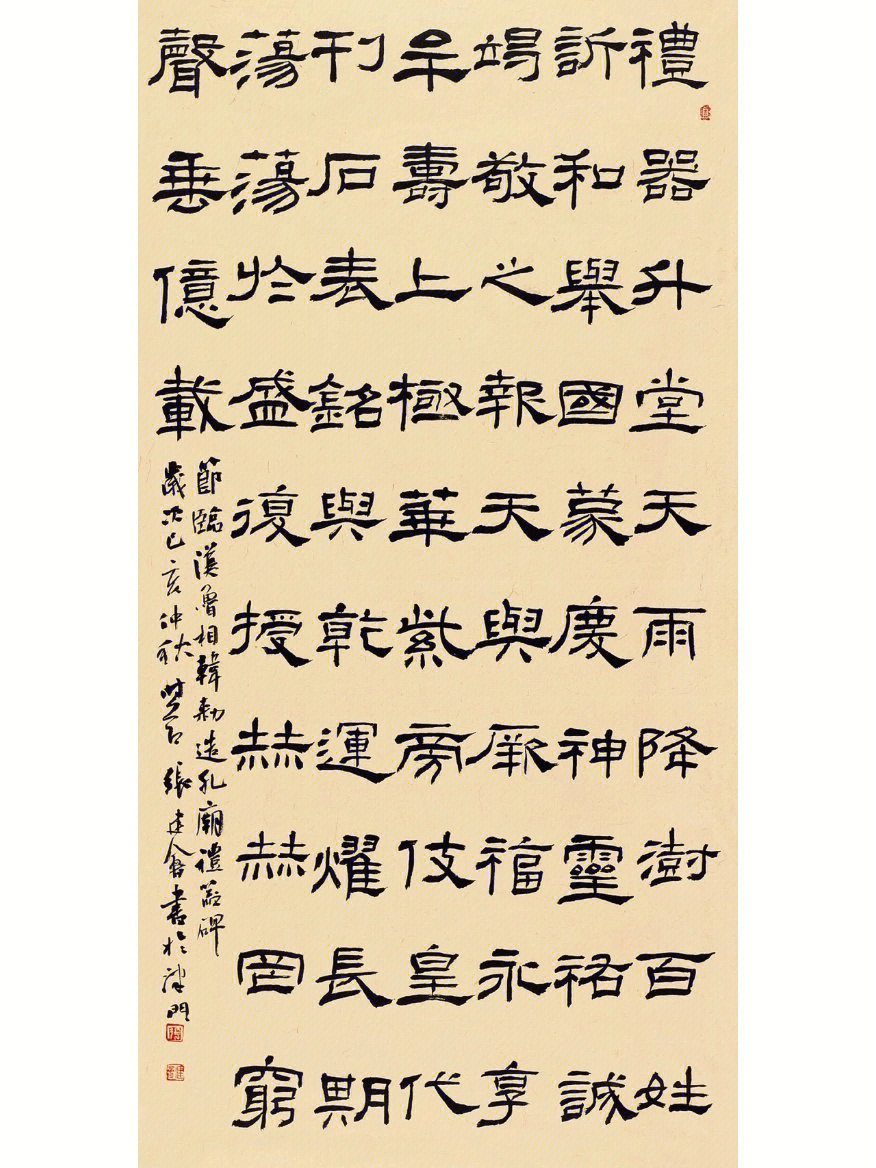 禮器升堂天雨降澍百姓
訢和舉國蒙慶神靈祐誠
竭敬之報天與厥福永享
牟壽上極華紫旁伎皇代
刊石表銘與乾運燿長期
蕩蕩於盛復授赫赫罔窮
聲垂億載
節臨漢魯相韓勅造孔廟禮器碑
歲次己亥仲秋 張建會書於津門